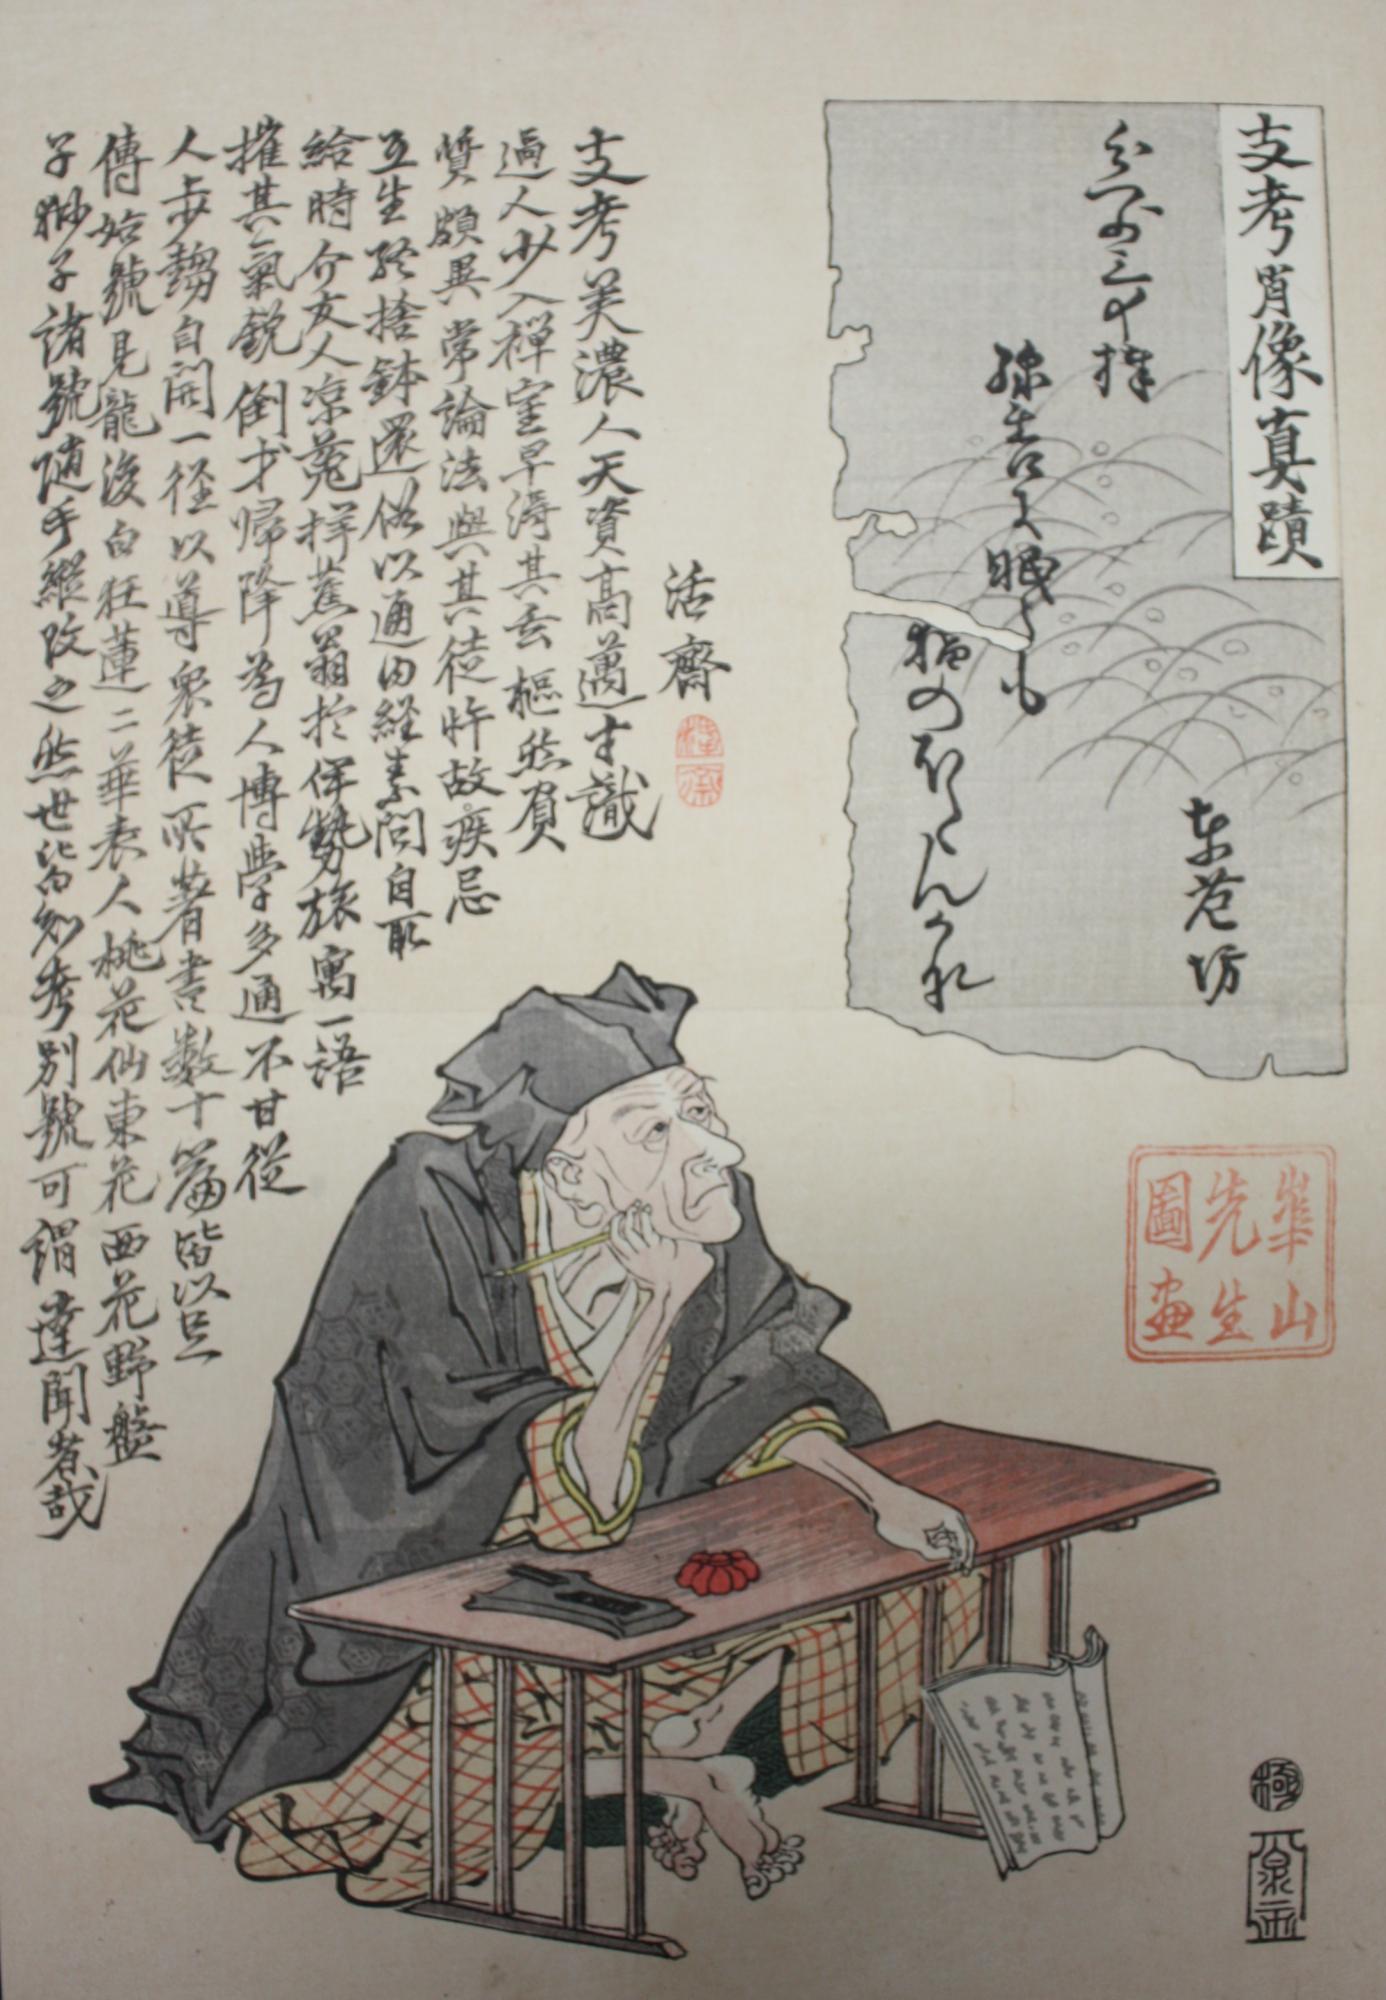 支考肖像真蹟
東花坊
華山
先生
圖畫
活齋
支考美濃人天資高邁才識
過人少入禅室早得其玄樞然負
質頗異常論法與其徒忤故疾忌
互生終捨鉢還俗以通内経素問自取
給時介友人涼菟拝蕉翁於伊勢旅寓一語
摧其氣鋭倒才帰降為人博學多通不甘従
人步趨自開一径以導衆徒所著書數十篇皆以
傳始號見龍後白狂蓮二華表人桃花仙東花西花野盤
子獅子諸號随手縦改之然世皆知考別號可謂達聞者哉
極